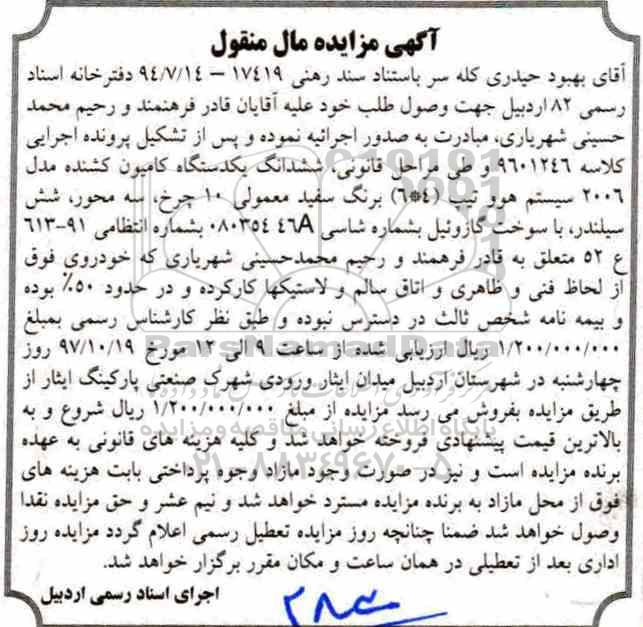 آگهی مزایده مال منقول
آقای بهبود حیدری کله سر باستناد سند رهنی ۱۷۴۱۹ – ۹۴/۷/۱۴ دفترخانه اسناد
رسمی ۸۲ اردبیل جهت وصول طلب خود علیه آقایان قادر فرهمند و رحیم محمد
حسینی شهریاری، مبادرت به صدور اجرائیه نموده و پس از تشکیل پرونده اجرایی
کلاسه ۹۶۰۱۲۴۶ و طی مراحل قانونی، ششدانگ یکدستگاه کامیون کشنده مدل
۲۰۰۶ سیستم هوو تیپ (۴*۶) برنگ سفید معمولی ۱۰ چرخ، سه محور، شش
سیلندر، با سوخت گازوئیل بشماره شاسی ۴۶A ۰۸۰۳۵۴ بشماره انتظامی ۹۱-۶۱۳
ع ۵۲ متعلق به قادر فرهمند و رحیم محمدحسینی شهریاری که خودروی فوق
از لحاظ فنی و ظاهری و اتاق سالم و لاستیکها کارکرده و در حدود ۵۰٪ بوده
و بیمه نامه شخص ثالث در دسترس نبوده و طبق نظر کارشناس رسمی بمبلغ
۱/۲۰۰/۰۰۰/۰۰۰ ریال ارزیابی شده از ساعت ۹ الی ۱۲ مورخ ۹۷/۱۰/۱۹ روز
چهارشنبه در شهرستان اردبیل میدان ایثار ورودی شهرک صنعتی پارکینگ ایثار از
طریق مزایده بفروش می رسد مزایده از مبلغ ۱/۲۰۰/۰۰۰/۰۰۰ ریال شروع و به
بالاترین قیمت پیشنهادی فروخته خواهد شد و کلیه هزینه های قانونی به عهده
برنده مزایده است و نیز در صورت وجود مازاد وجوه پرداختی بابت هزینه های
فوق از محل مازاد به برنده مزایده مسترد خواهد شد و نیم عشر و حق مزایده نقدا
وصول خواهد شد ضمنا چنانچه روز مزایده تعطیل رسمی اعلام گردد مزایده روز
اداری بعد از تعطیلی در همان ساعت و مکان مقرر برگزار خواهد شد.
اجرای اسناد رسمی اردبیل
ParsNamadData
پایگاه اطلاع رسانی مناقصه و مزایده
۰۲۱-۸۸۳۴۹۶۷۰-۵